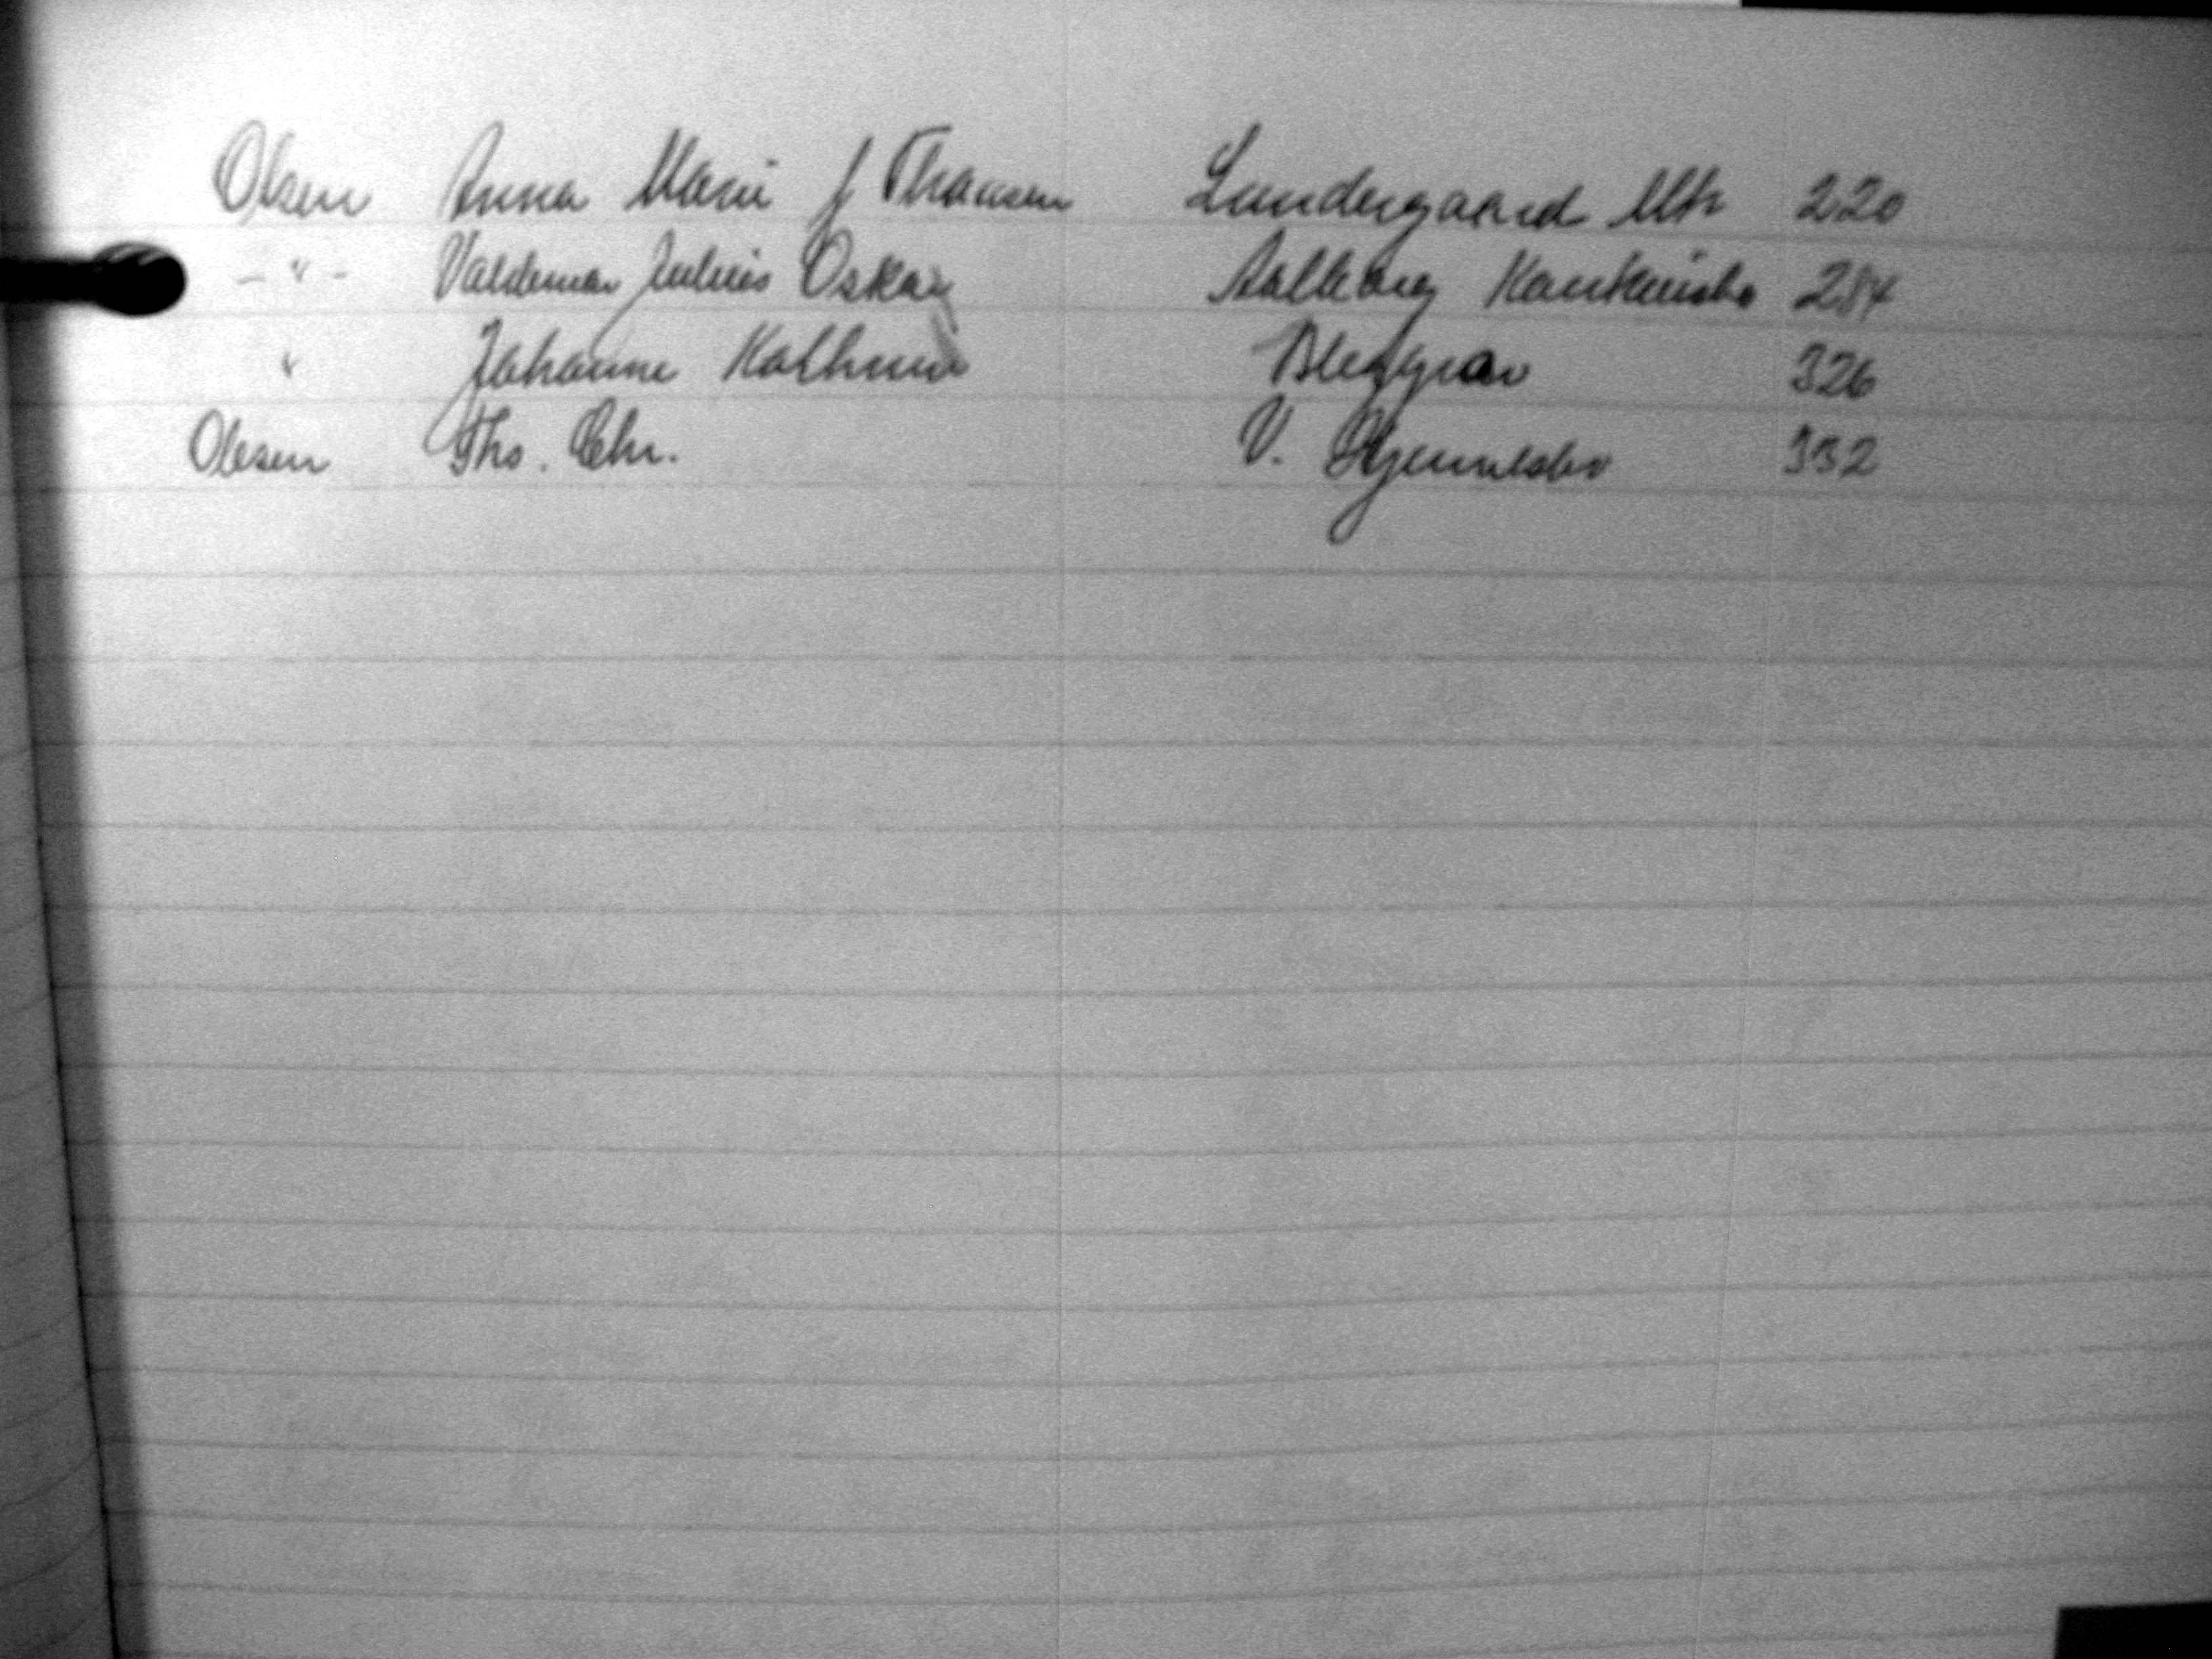 Olsen Anna Marie f Thausen Lundergaard Mk 220
- " - Valdemar Julius Oskar Aalborg 284
" Johanne Kathrine Bleggrav 326
Olesen Ths. Chr. V. Hjermitslev 332